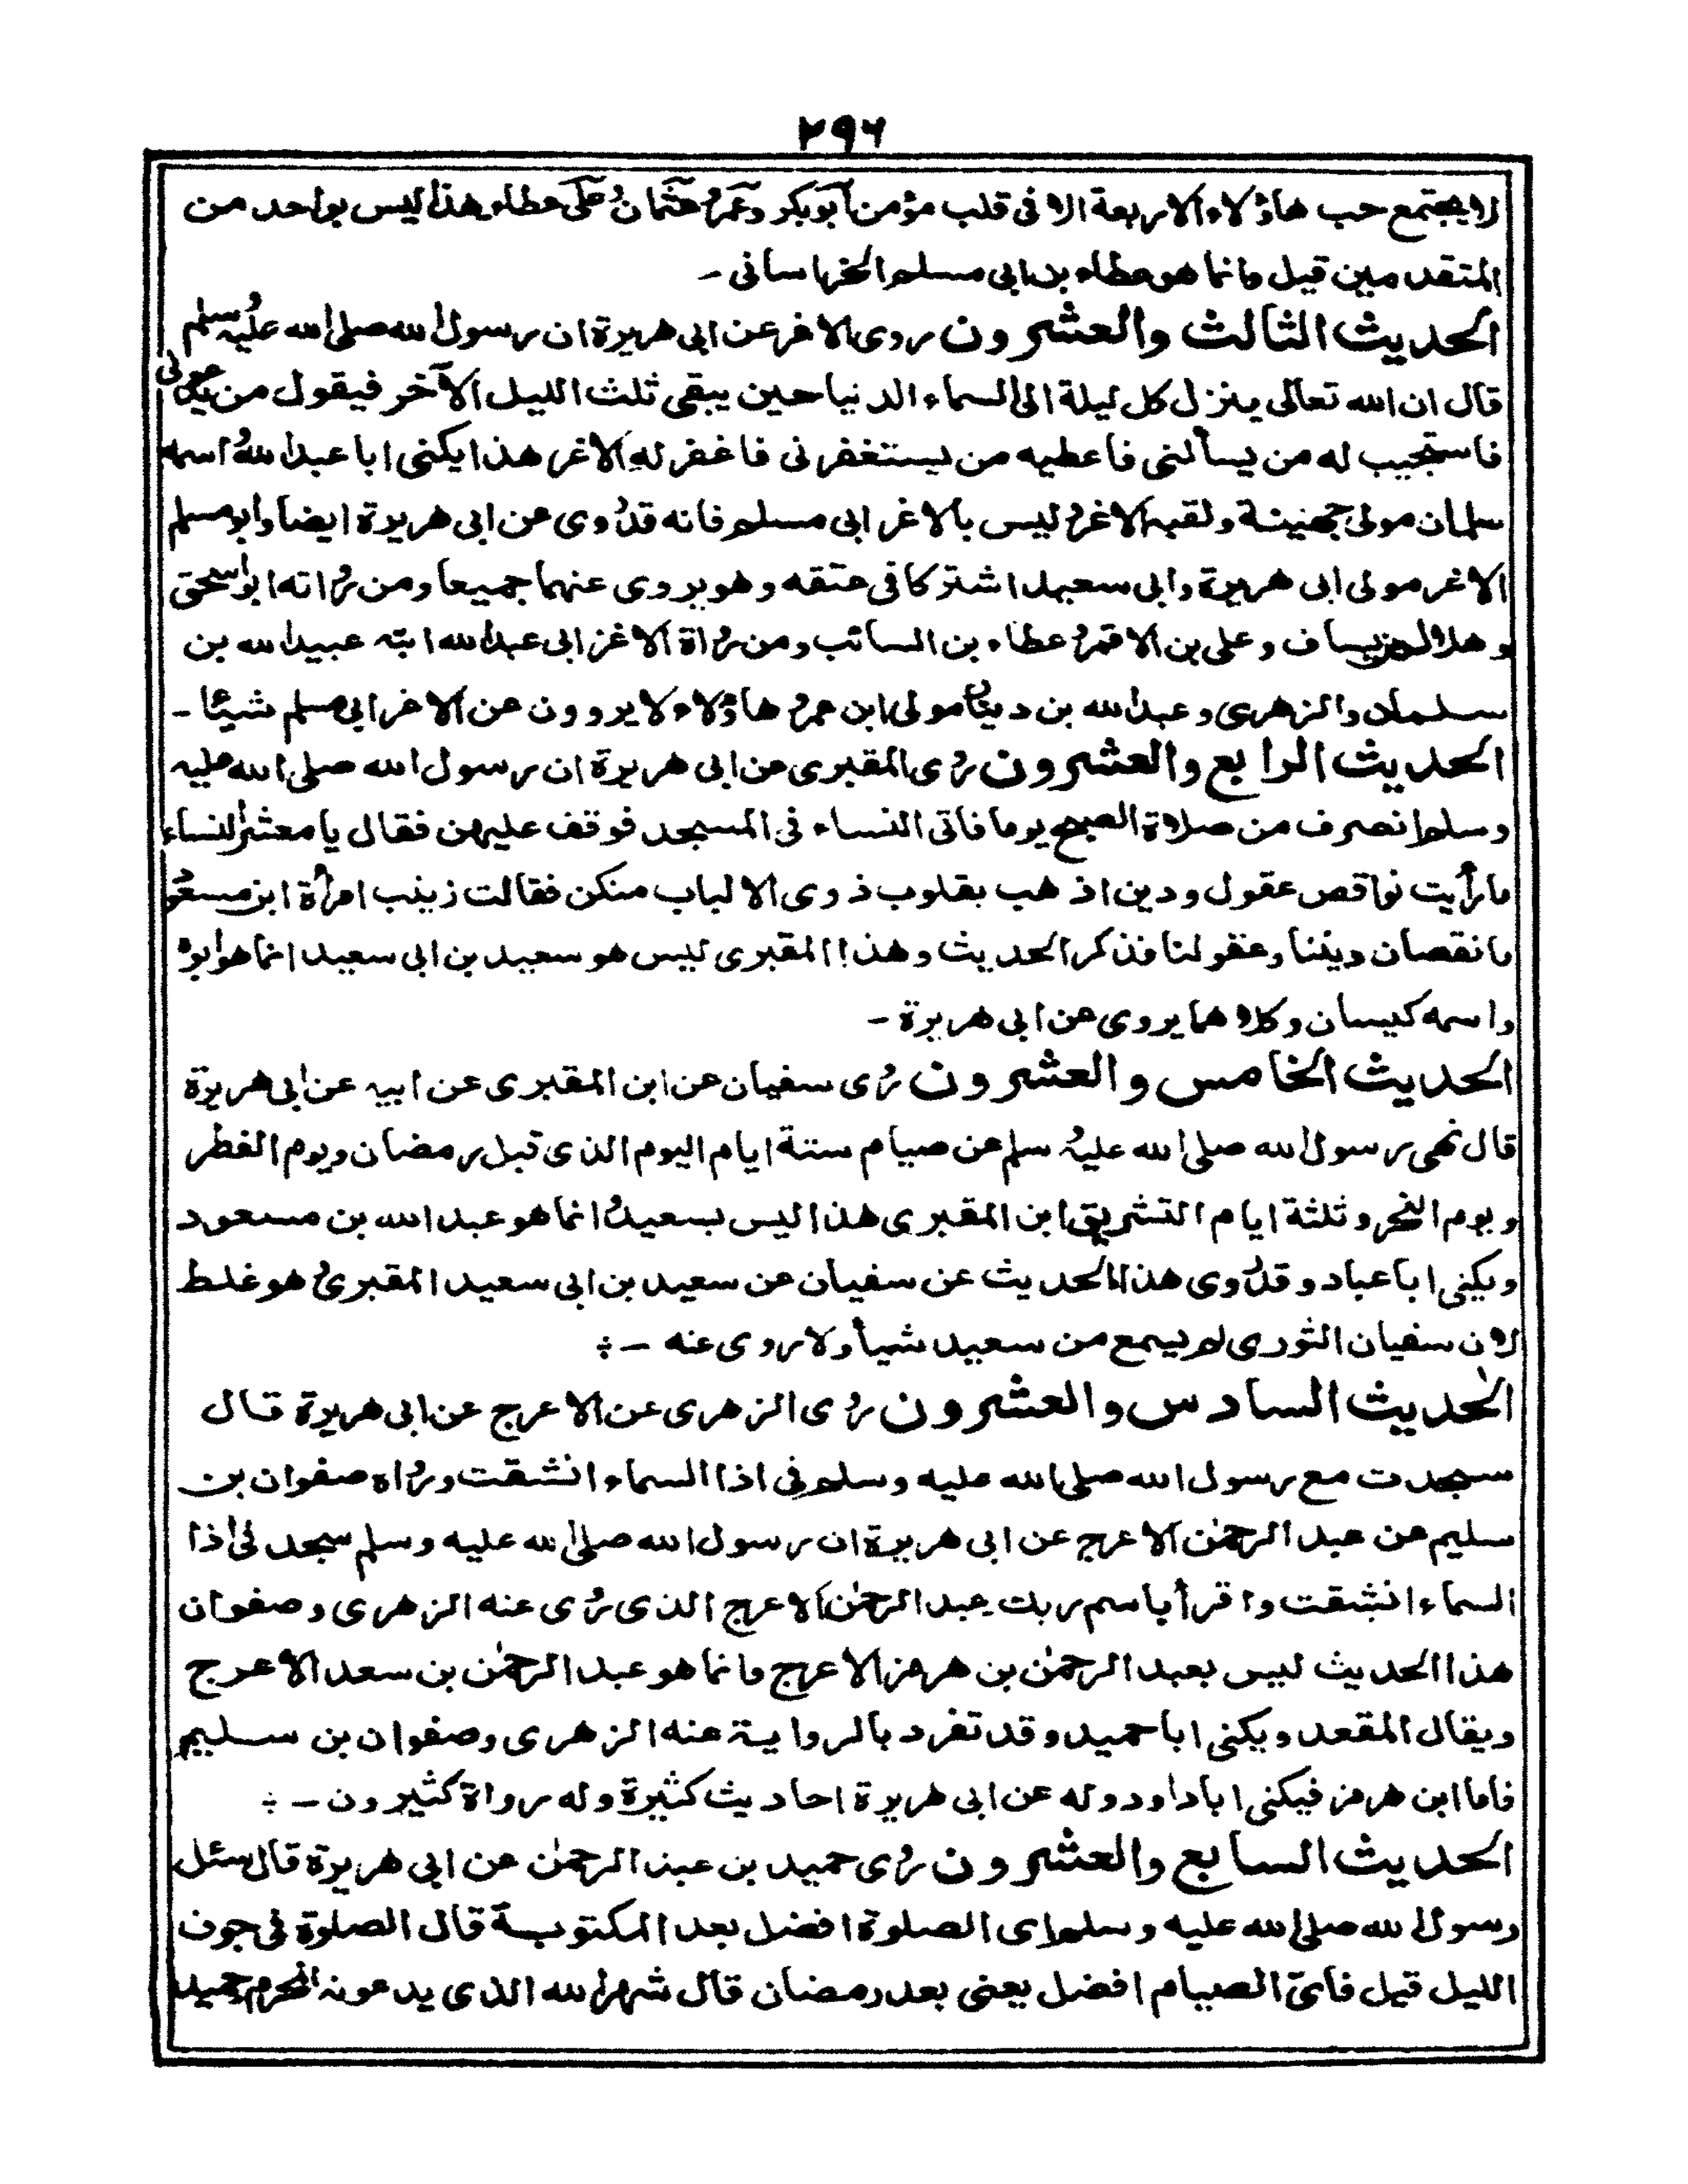 ۲۹۶
لا یجتمع حب هاؤلاء الاربعة الا فی قلب مؤمن ابوبکر وعمر وعثمان وعلی عطاء هذا لیس بواحد من
المتقدمین قیل وانما هو عطاء بن ابی مسلم الخراسانی ۔
الحدیث الثالث والعشرون روی الاغر عن ابی هریرة ان رسول الله صلی الله علیه وسلم
قال ان الله تعالی ینزل کل لیلة الی السماء الدنیا حین یبقی ثلث اللیل الآخر فیقول من یدعونی
فاستجیب له من یسألنی فاعطیه من یستغفرنی فاغفر له الاغر هذا یکنی ابا عبد الله واسمه
سلمان مولی جهینة ولقبه الاغر ولیس بالاغر ابی مسلم فانه قد روی عن ابی هریرة ایضا وابو مسلم
الاغر مولی ابی هریرة وابی سعید اشترکا فی عتقه وهو یروی عنهما جمیعا ومن رواته ابو اسحق
و هلال بن یساف وعلی بن الاقمر وعطاء بن السائب ومن رواة الاغر ابی عبد الله ابنه عبید الله بن
سلمان والزهری وعبد الله بن دینار مولی ابن عمر وهاؤلاء لا یروون عن الاغر ابی مسلم شیئا ۔
الحدیث الرابع والعشرون روی المقبری عن ابی هریرة ان رسول الله صلی الله علیه
وسلم انصرف من صلاة الصبح یوما فاتی النساء فی المسجد فوقف علیهن فقال یا معشر النساء
ما رأیت نواقص عقول ودین اذهب بقلوب ذوی الالباب منکن فقالت زینب امرأة ابن مسعود
ما نقصان دیننا وعقولنا فذکر الحدیث وهذا المقبری لیس هو سعید بن ابی سعید انما هو ابوه
واسمه کیسان وکلاهما یروی عن ابی هریرة ۔
الحدیث الخامس والعشرون روی سفیان عن ابن المقبری عن ابیه عن ابی هریرة
قال نهی رسول الله صلی الله علیه وسلم عن صیام ستة ایام الیوم الذی قبل رمضان ویوم الفطر
ویوم النحر وثلثة ایام التشریق ابن المقبری هذا لیس بسعید وانما هو عبد الله بن مسعود
ویکنی ابا عباد وقد روی هذا الحدیث عن سفیان عن سعید بن ابی سعید المقبری وهو غلط
لان سفیان الثوری لم یسمع من سعید شیأ ولا روی عنه ۔
الحدیث السادس والعشرون روی الزهری عن الاعرج عن ابی هریرة قال
سجدت مع رسول الله صلی الله علیه وسلم فی اذا السماء انشقت ورواه صفوان بن
سلیم عن عبد الرحمٰن الاعرج عن ابی هریرة ان رسول الله صلی الله علیه وسلم سجد فی اذا
السماء انشقت واقرأ باسم ربك عبد الرحمٰن الاعرج الذی روی عنه الزهری وصفوان
هذا الحدیث لیس بعبد الرحمٰن بن هرمز الاعرج وانما هو عبد الرحمٰن بن سعد الاعرج
ویقال المقعد ویکنی ابا حمید وقد تفرد بالروایة عنه الزهری وصفوان بن سلیم
فاما ابن هرمز فیکنی ابا داود وله عن ابی هریرة احادیث کثیرة وله رواة کثیرون ۔
الحدیث السابع والعشرون روی حمید بن عبد الرحمٰن عن ابی هریرة قال سئل
رسول الله صلی الله علیه وسلم ای الصلوة افضل بعد المکتوبة قال الصلوة فی جوف
اللیل قیل فای الصیام افضل یعنی بعد رمضان قال شهر الله الذی یدعونه المحرم حمید